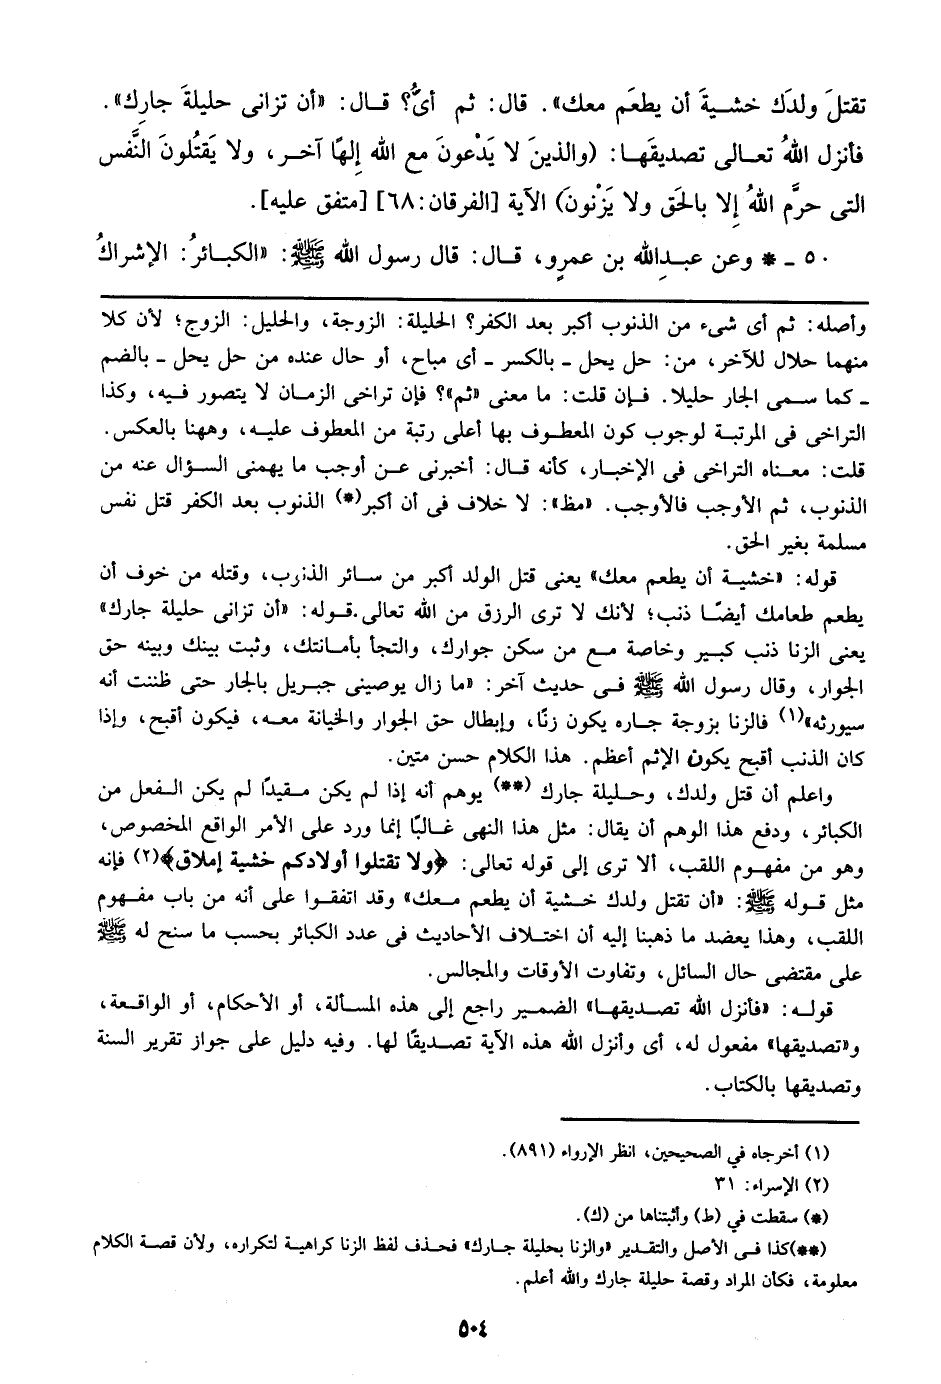 تقتلَ ولدَك خشـيةَ أن يطعَم معك». قال: ثم أىُّ؟ قـال: «أن تزانى حليلةَ جارِك».
فأنزل اللهُ تعـالى تصديقَهـا: (والذينَ لا يَدْعونَ مع الله إلهًا آخـر، ولا يَقتُلونَ النَّفس
التى حرَّم اللهُ إلا بالحَق ولا يَزْنونَ) الآية [الفرقان:٦٨] [متفق عليه].
٥٠ ـ * وعن عبـدِالله بن عمرٍو، قـال: قال رسول الله ﷺ: «الكبـائرُ: الإشراكُ
وأصله: ثم أى شىء من الذنوب أكبر بعد الكفر؟ الحليلة: الزوجة، والحليل: الزوج؛ لأن كلا
منهما حلال للآخر، من: حل يحل ـ بالكسر ـ أى مباح، أو حال عنده من حل يحل ـ بالضم
ـ كما سـمى الجار حليلا. فـإن قلت: ما معنى «ثم»؟ فإن تراخى الزمـان لا يتصور فيه، وكذا
التراخى فى المرتبـة لوجوب كون المعطـوف بها أعلى رتبة من المعطوف عليـه، وههنا بالعكس.
قلت: معـناه التراخى فى الإخبـار، كأنه قـال: أخبرنى عـن أوجب ما يهمنى السـؤال عنه من
الذنوب، ثم الأوجب فالأوجب. «مظ»: لا خلاف فى أن أكبر(*) الذنوب بعد الكفر قتل نفس
مسلمة بغير الحق.
قوله: «خشـية أن يطعم معك» يعنى قتل الولد أكبر من سـائر الذنوب، وقتله من خوف أن
يطعم طعامك أيضًـا ذنب؛ لأنك لا ترى الرزق من الله تعالى.قـوله: «أن تزانى حليلة جارك»
يعنى الزنا ذنب كبـير وخاصة مـع من سكن جوارك، والتجأ بأمـانتك، وثبت بينك وبينه حق
الجوار، وقال رسول الله ﷺ فـى حديث آخر: «ما زال يوصينى جبـريل بالجار حتى ظننت أنه
سيورثه»(١) فالزنا بزوجة جـاره يكون زنًا، وإبطال حق الجوار والخيانة معـه، فيكون أقبح، وإذا
كان الذنب أقبح يكون الإثم أعظم. هذا الكلام حسن متين.
واعلم أن قتل ولدك، وحـليلة جارك (**) يوهم أنه إذا لم يكن مـقيدًا لم يكن الـفعل من
الكبائر، ودفع هذا الوهم أن يقال: مثل هذا النهى غـالبًا إنما ورد على الأمر الواقع المخصوص،
وهو من مفهـوم اللقب، ألا ترى إلى قوله تعالى: ﴿ولا تقتلوا أولادكم خشية إملاق﴾(٢) فإنه
مثل قـوله ﷺ: «أن تقتل ولدك خـشية أن يطعم مـعك» وقد اتفقـوا على أنه من باب مفـهوم
اللقب، وهذا يعضد ما ذهبنا إليه أن اختـلاف الأحاديث فى عدد الكبائر بحسب ما سنح له ﷺ
على مقتضى حال السائل، وتفاوت الأوقات والمجالس.
قولـه: «فأنزل الله تصـديقهـا» الضمير راجع إلى هذه المسـألة، أو الأحكام، أو الواقعة،
و«تصديقها» مفعول له، أى وأنزل الله هذه الآية تصـديقًا لها. وفيه دليل على جواز تقرير السنة
وتصديقها بالكتاب.
(١) أخرجاه في الصحيحين، انظر الإرواء (٨٩١).
(٢) الإسراء: ٣١
(*) سقطت في (ط) وأثبتناها من (ك).
(**)كذا فـى الأصل والتقدير «والزنا بحليلة جـارك» فحذف لفظ الزنا كراهية لتكراره، ولأن قصـة الكلام
معلومة، فكأن المراد وقصة حليلة جارك والله أعلم.
٥٠٤